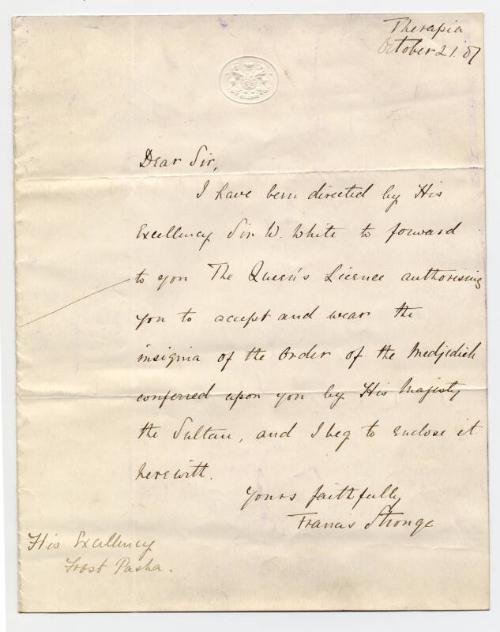 Therapia
October 21. 87
Dear Sir,
I have been directed by His
Excellency Sir W. White to forward
to you The Queen's Licence authorising
you to accept and wear the
insignia of the Order of the Medjidieh
conferred upon you by His Majesty
the Sultan, and I beg to enclose it
herewith.
Yours faithfully
Francis Stronge
His Excellency
Frost Pasha.